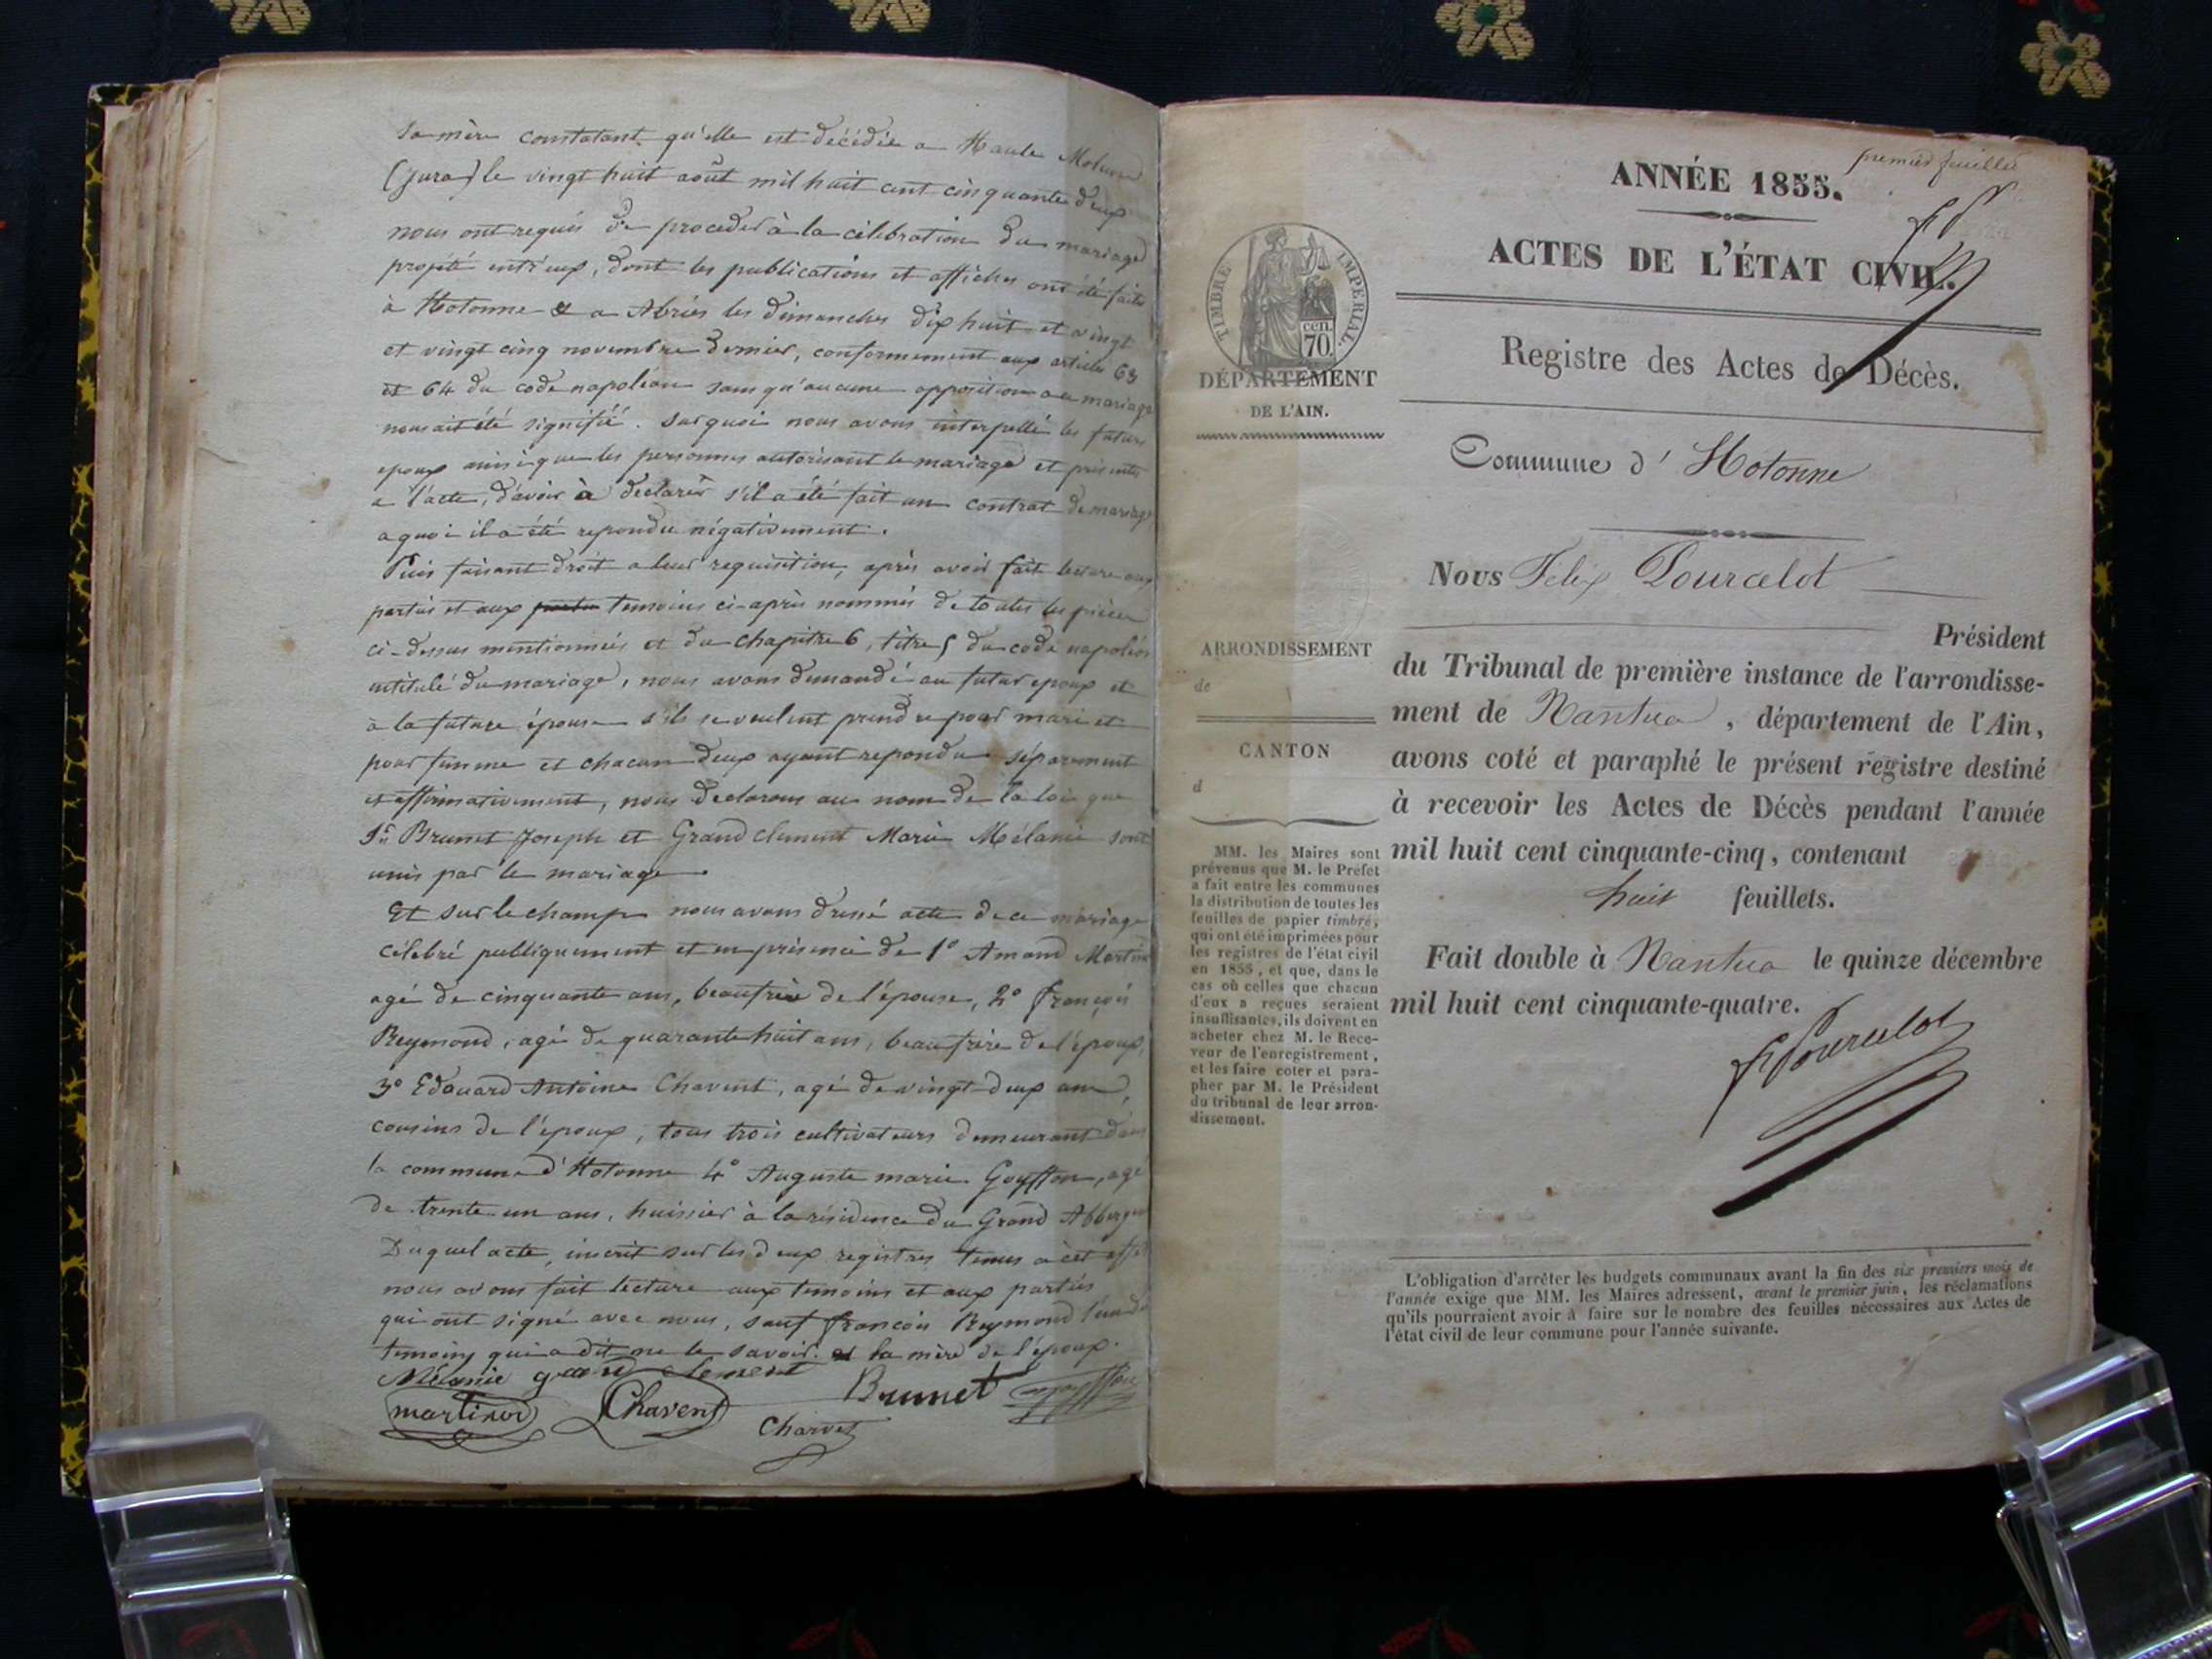 sa mère constatant qu'elle est décédée a Haute Molune
(jura) le vingt huit août mil huit cent cinquante deux
nous ont requis de proceder à la célébration du mariage
projété entr'eux, dont les publications et affiches ont été faites
à Hotonne & a Abriès les dimanches dix huit et vingt
et vingt cinq novembre dernier, conformement aux articles 63
et 64 du code napoléon sans qu'aucune opposition au mariage
nous ait été signifié. sur quoi nous avons interpellé les futurs
epoux ainsi que les personnes autorisant le mariage et présents
a l'acte, d'avoir à declarer s'il a été fait un contrat de mariage
a quoi il a été repondu négativement.
Puis faisant droit a leur requisition, après avoir fait lecture aux
parties et aux temoins ci-après nommés de toutes les pièces
ci-dessus mentionnées et du chapitre 6, titre 5 du code napoléon
intitulé du mariage, nous avons demandé au futur epoux et
à la future épouse s'ils se veulent prendre pour mari et
pour femme et chacun deux ayant repondu séparement
et affirmativement, nous declarons au nom de la loi que
Sr Brunet Joseph et Grandclement Marie Mélanie sont
unis par le mariage.
Et sur le champ nous avons dressé acte de ce mariage
célébré publiquement et en présence de 1° Amand Martinod
agé de cinquante ans, beaufrère de l'épouse, 2° françois
Reymond, agé de quarante huit ans, beaufrère de l'époux,
3° Edouard Antoine Chavent, agé de vingt deux ans,
cousins de l'époux, tous trois cultivateurs demeurant dans
la commune d'Hotonne 4° Auguste marie Goyffon, agé
de trente un ans, huissier à la résidence du Grand Abbergement
Duquel acte, inscrit sur les deux registres tenus à cet effet
nous avons fait lecture aux temoins et aux parties
qui ont signé avec nous, sauf françois Reymond l'un des
temoins qui a dit ne le savoir. et la mère de l'époux.
Mélanie grand clement
Brunet Goyffon
martinod Chavent
Charvet
premier feuillet
ANNÉE 1855.
ACTES DE L'ÉTAT CIVIL.
TIMBRE IMPERIAL.
cen.
70.
Registre des Actes de Décès.
DÉPARTEMENT
DE L'AIN.
Commune d'Hotonne
Nous Félix Pourcelot
Président
ARRONDISSEMENT
de
du Tribunal de première instance de l'arrondisse-
ment de Nantua, département de l'Ain,
CANTON
d
avons coté et paraphé le présent registre destiné
à recevoir les Actes de Décès pendant l'année
mil huit cent cinquante-cinq, contenant
huit feuillets.
Fait double à Nantua le quinze décembre
mil huit cent cinquante-quatre.
F Pourcelot
MM. les Maires sont
prévenus que M. le Préfet
a fait entre les communes
la distribution de toutes les
feuilles de papier timbré,
qui ont été imprimées pour
les registres de l'état civil
en 1855, et que, dans le
cas où celles que chacun
d'eux a reçues seraient
insuffisantes, ils doivent en
acheter chez M. le Rece-
veur de l'enregistrement,
et les faire coter et para-
pher par M. le Président
du tribunal de leur arron-
dissement.
L'obligation d'arrêter les budgets communaux avant la fin des six premiers mois de
l'année exige que MM. les Maires adressent, avant le premier juin, les réclamations
qu'ils pourraient avoir à faire sur le nombre des feuilles nécessaires aux Actes de
l'état civil de leur commune pour l'année suivante.